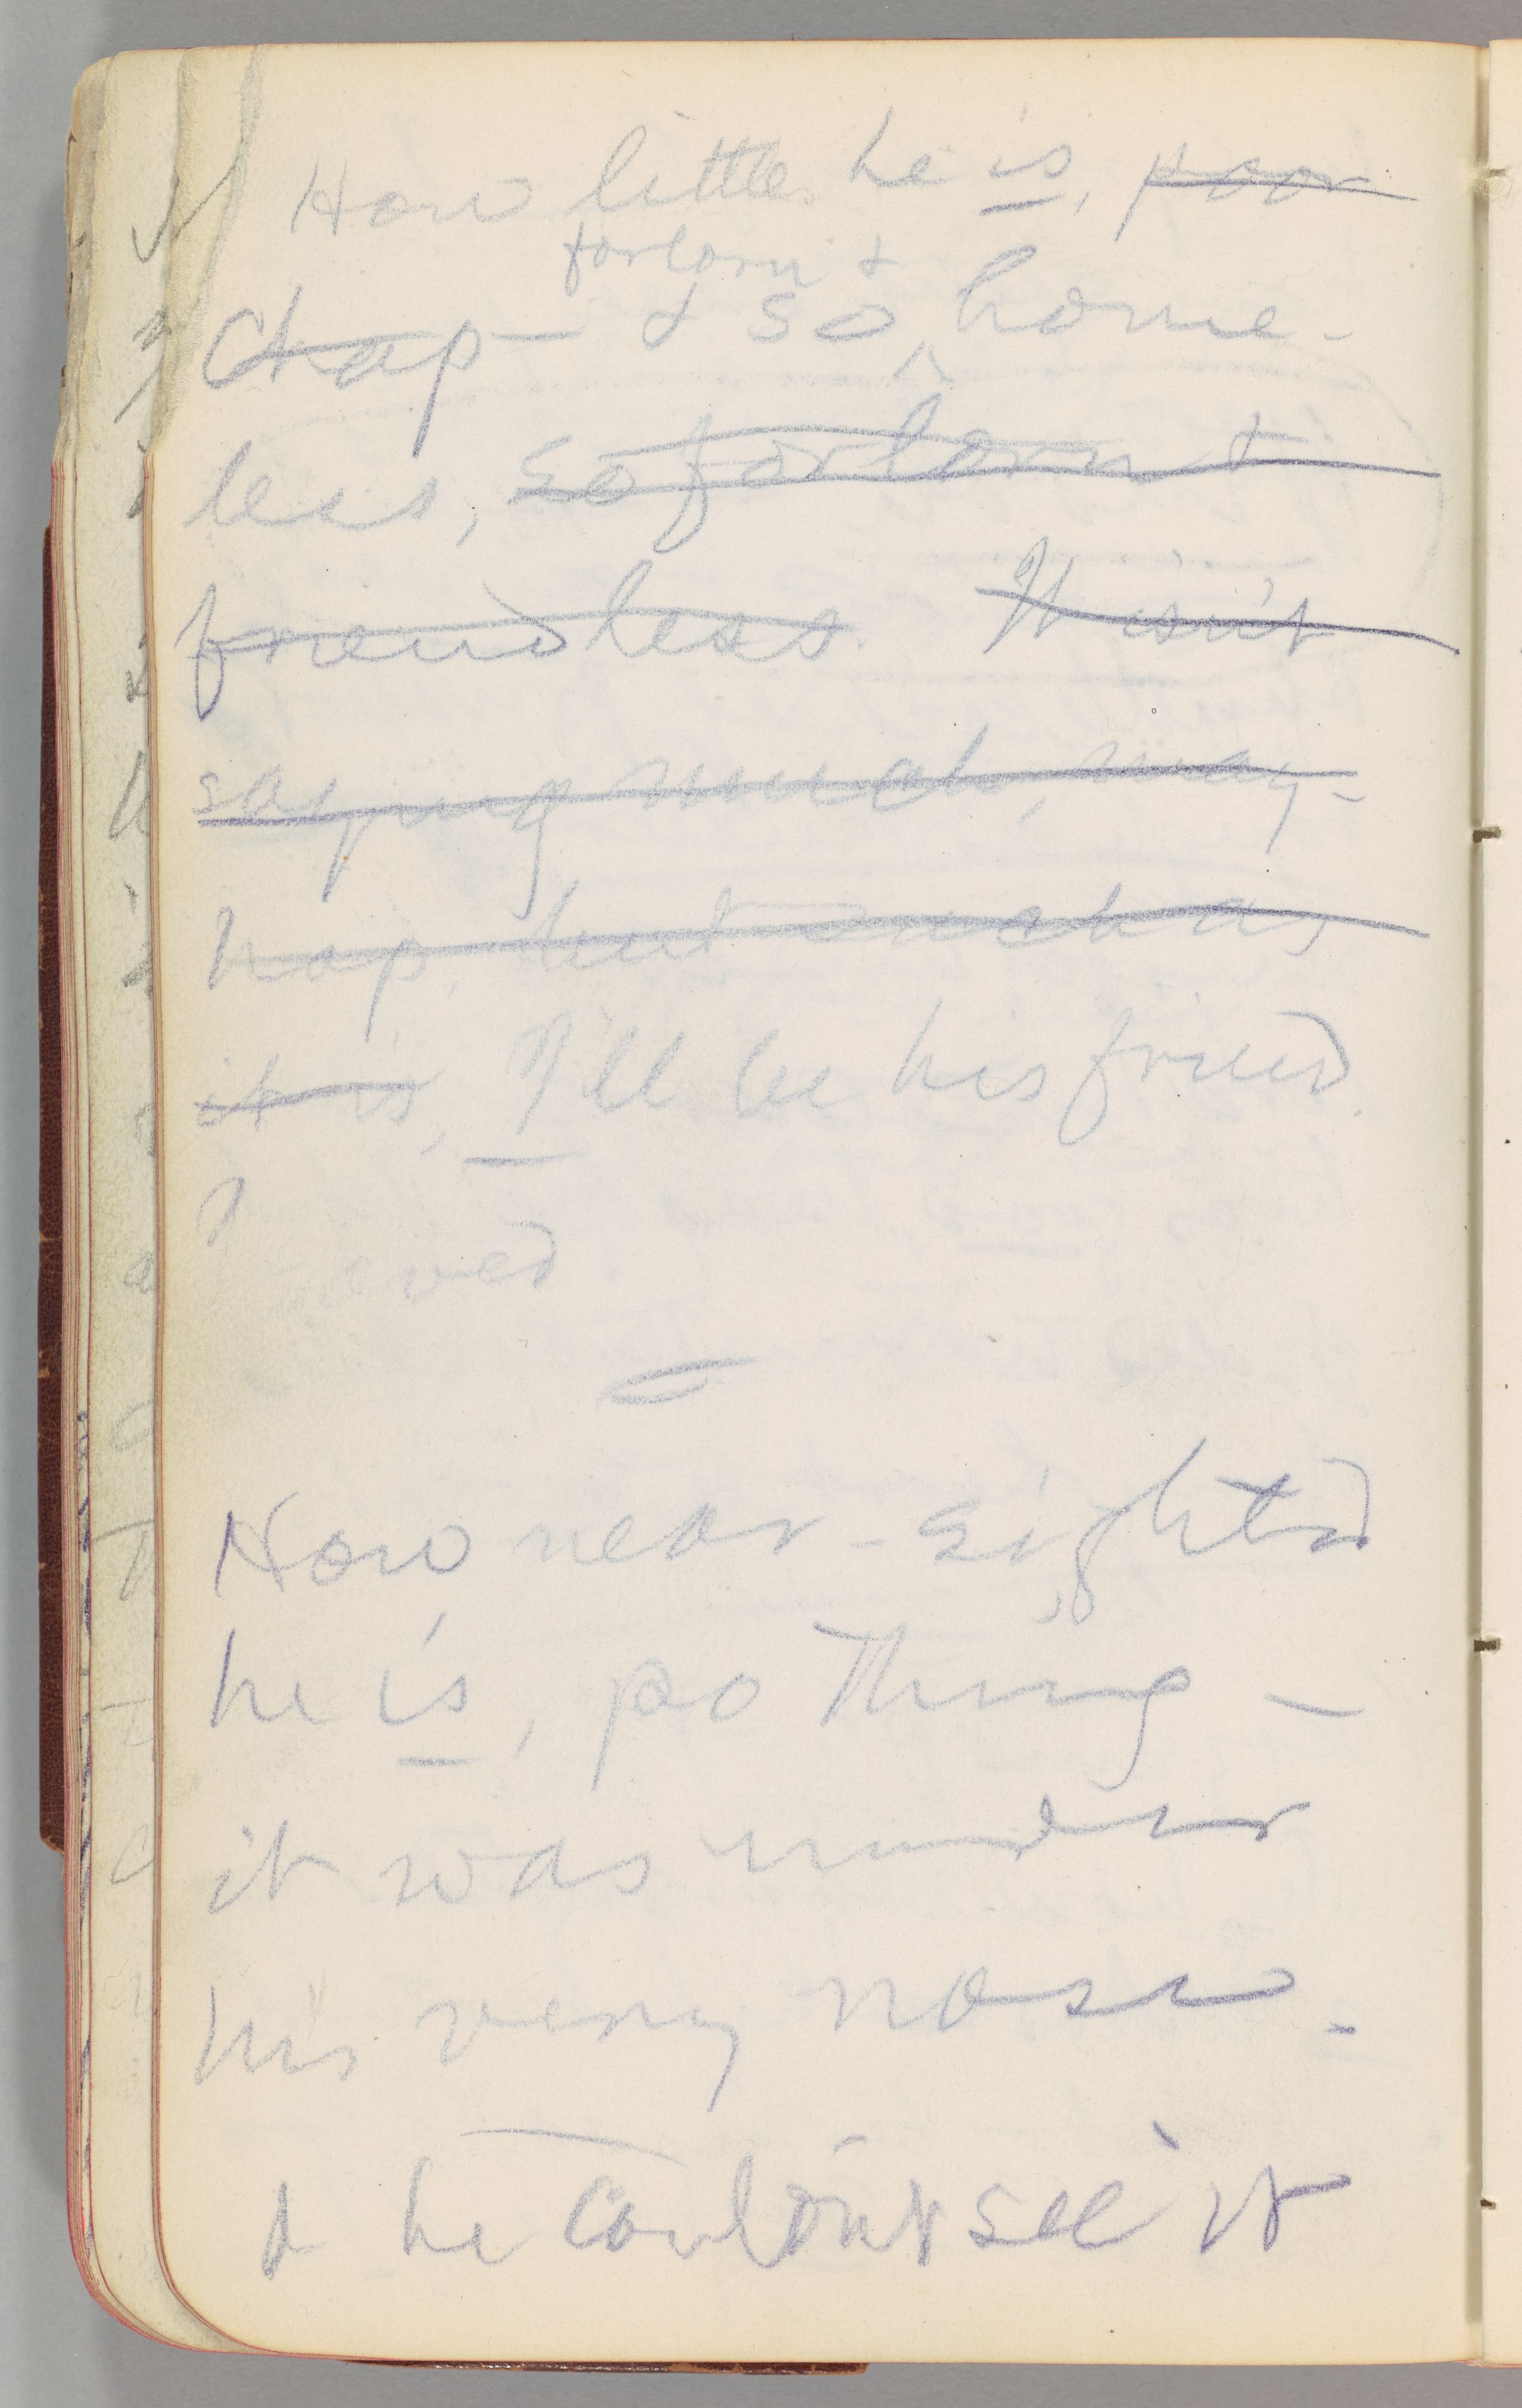 How little he is, poor
forlorn &
Chap — & so home-
less, so forlorn &
friendless. It isn't
saying much, may-
hap, but such as
it is, I'll be his friend.
How near-sighted
he is, po thing —
it was under
his very nose -
& he couldn't see it